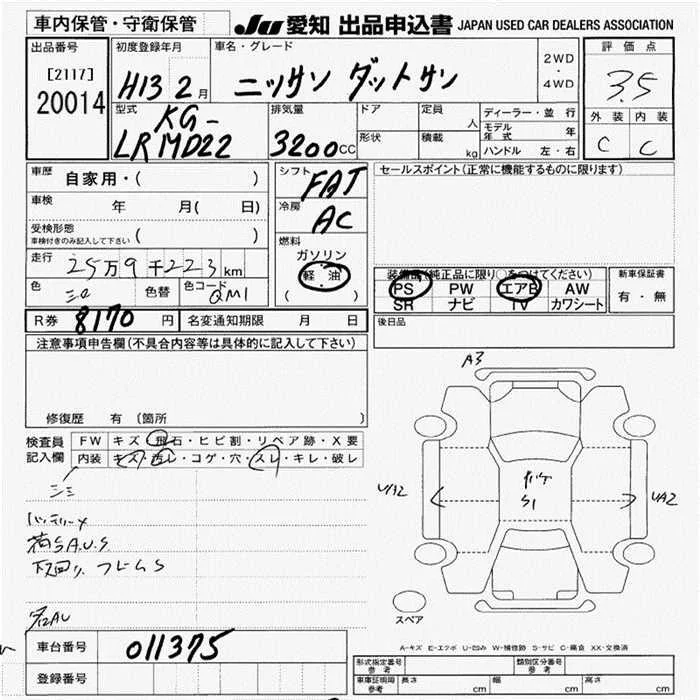 車内保管・守衛保管 JU 愛知 出品申込書 JAPAN USED CAR DEALERS ASSOCIATION
出品番号 初度登録年月 車名・グレード 2WD・4WD 評価点
[2117] 20014 H13 2月 ニッサン ダットサン 3.5
型式 KG-LRMD22 排気量 3200cc ドア 定員 人 ディーラー・並行 外装 内装
形状 積載 kg モデル年式 年 C C
ハンドル 左・右
車歴 自家用・( ) シフト FAT セールスポイント(正常に機能するものに限ります)
車検 年 月( 日) 冷房 AC
受検形態 車検付きのみ記入して下さい ( ) 燃料 ガソリン
走行 25万9千223km 軽油
( )
色 色替 色コード QM1
装備品(純正品に限り○をつけてください) 新車保証書
PS PW エアB AW 有・無
SR ナビ TV カワシート
R券 8170円 名変通知期限 月 日 後日品
注意事項申告欄(不具合内容等は具体的に記入して下さい)
修復歴 有 〔箇所 〕
検査員記入欄 FW キズ・飛石・ヒビ割・リペア跡・X要
内装 キズ・汚レ・コゲ・穴・スレ・キレ・破レ
A3
S1
UA2
スペア
A-キズ E-エクボ U-凹み W-補修跡 S-サビ C-腐食 XX-交換済
車台番号 011375
登録番号
形式指定番号 参考 類別区分番号 参考
車庫証明用 参考 長さ cm 幅 cm 高さ cm